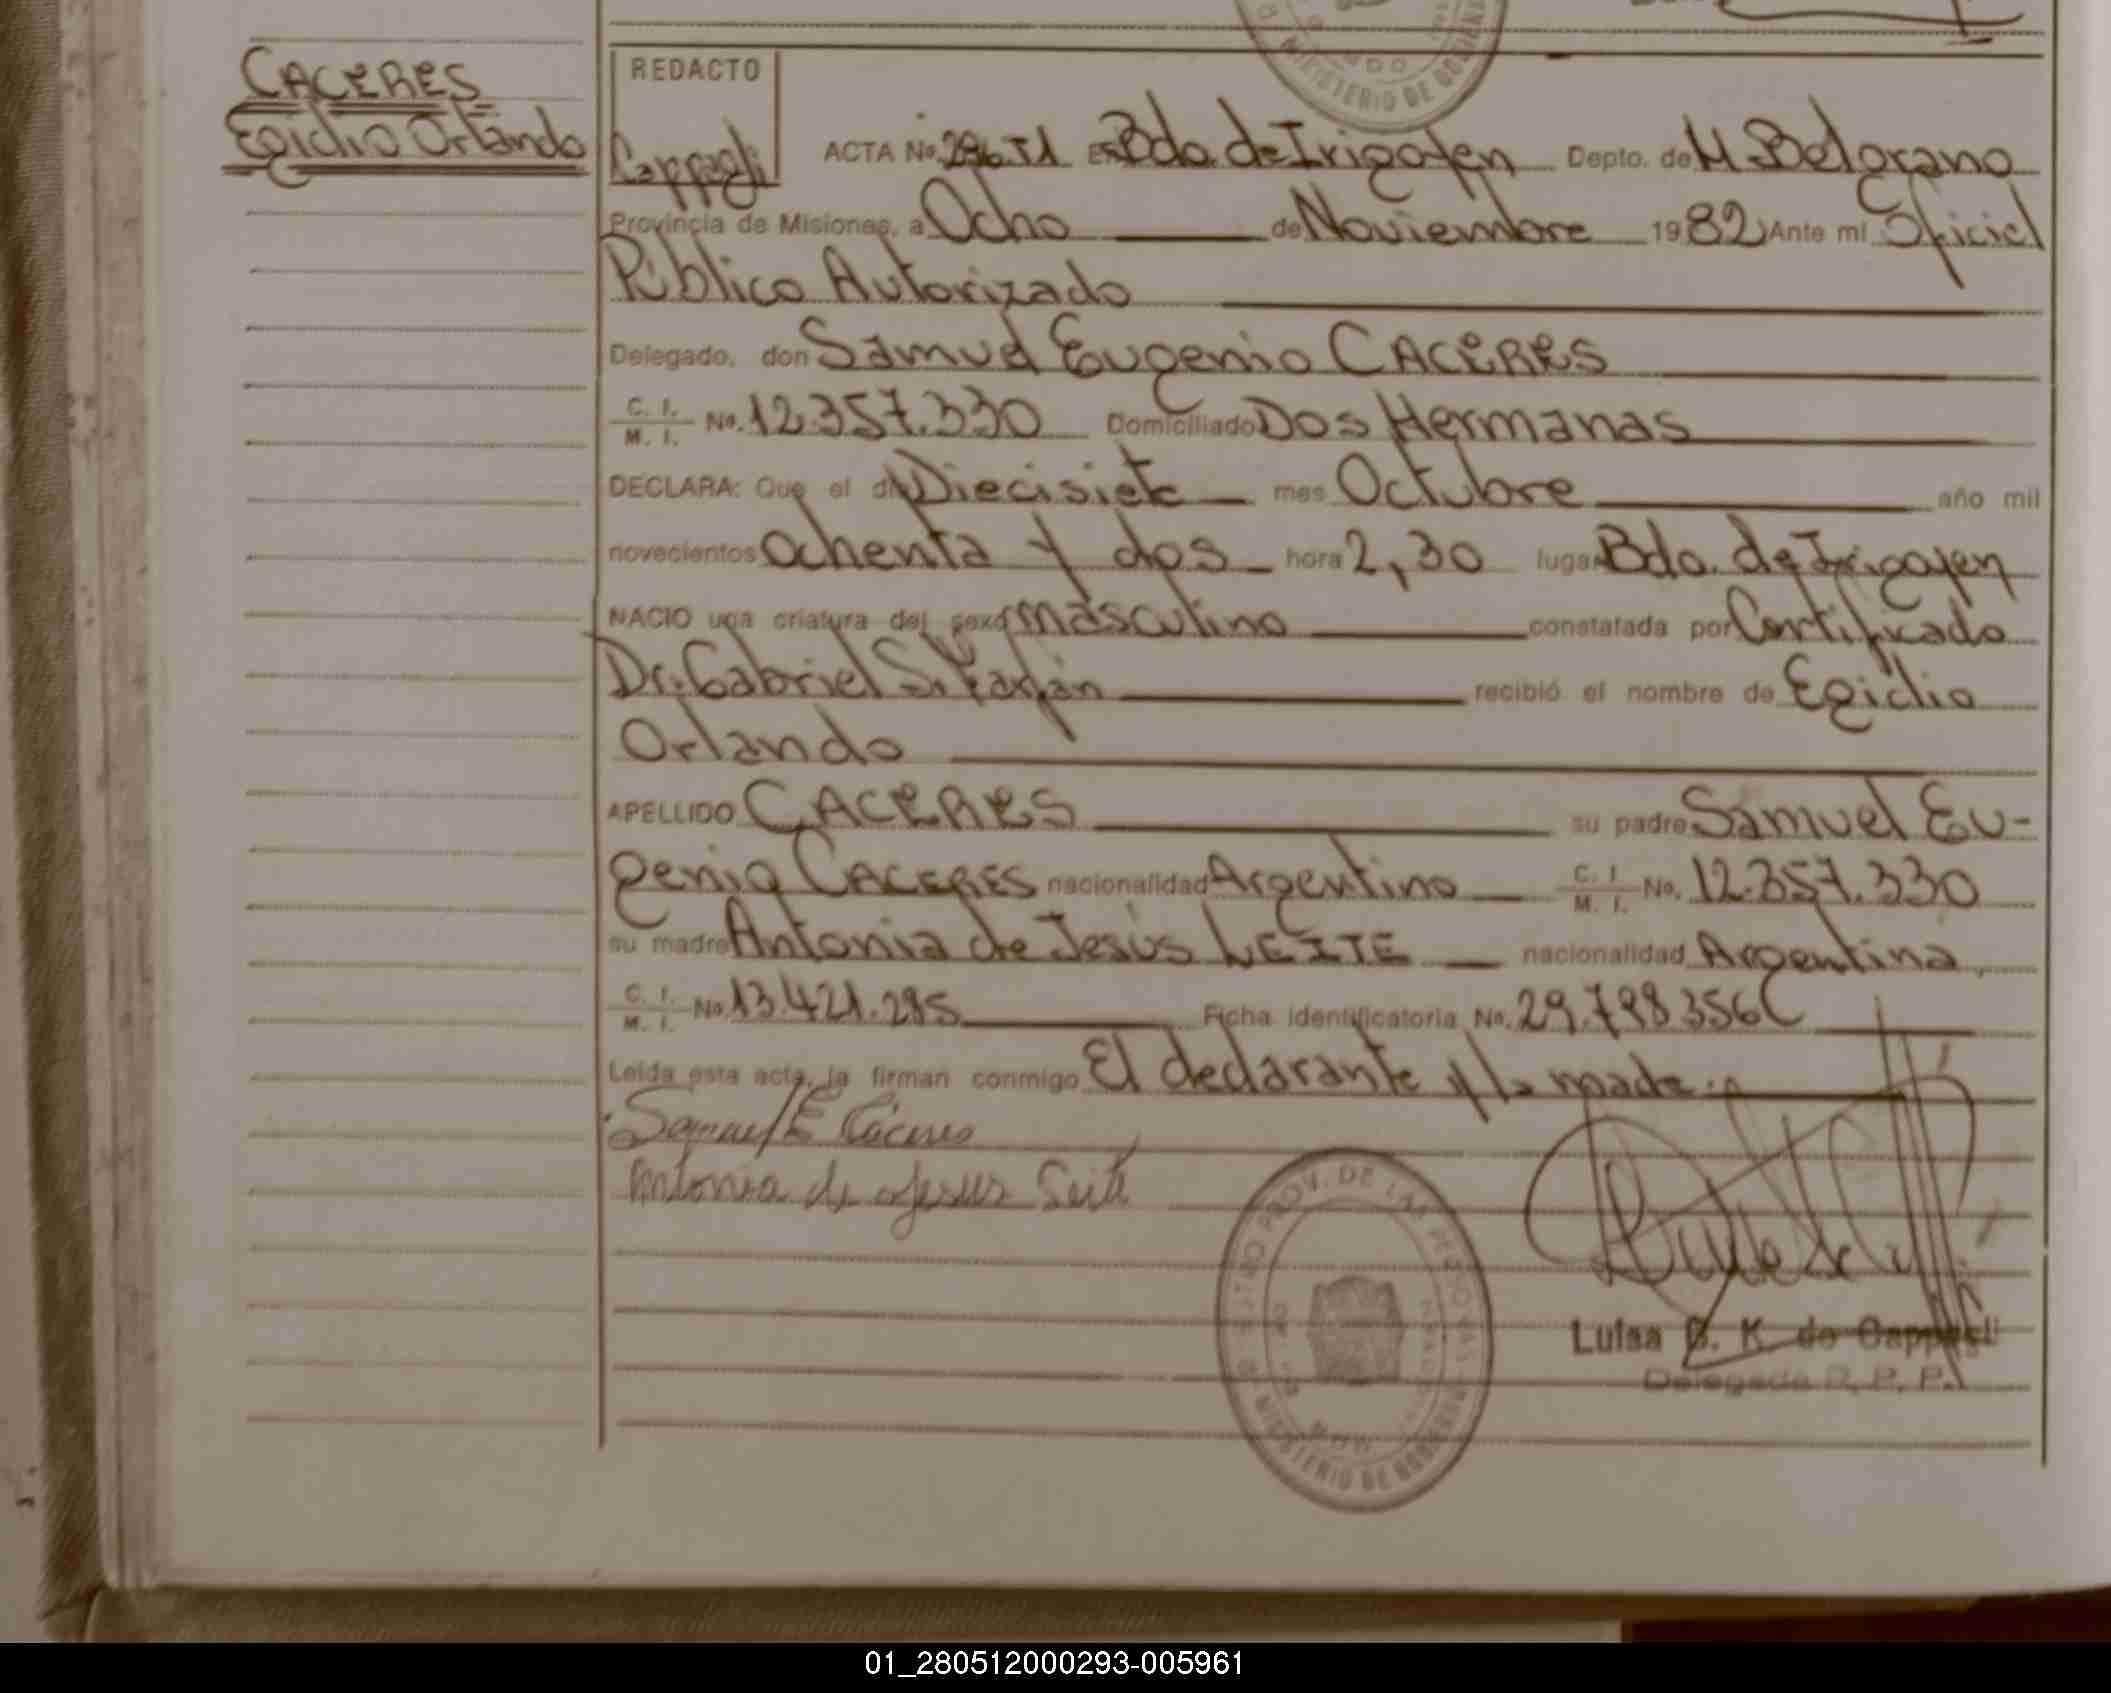 CACERES
Egidio Orlando
REDACTO
Cappagli
ACTA No. T1 En Bdo. de Irigoyen Depto. de M. Belgrano
Provincia de Misiones, a Ocho de Noviembre 1982 Ante mi Oficial
Público Autorizado
Delegado, don Samuel Eugenio CACERES
C. I. M. I. No. 12.357.330 Domiciliado Dos Hermanas
DECLARA: Que el día Diecisiete mes Octubre año mil
novecientos ochenta y dos hora 2,30 lugar Bdo. de Irigoyen
NACIO una criatura del sexo masculino constatada por Certificado
Dr. Gabriel S. recibió el nombre de Egidio
Orlando
APELLIDO CACERES su padre Samuel Eu-
genio CACERES nacionalidad Argentino C. I. M. I. No. 12.357.330
su madre Antonia de Jesús LEITE nacionalidad Argentina
C. I. M. I. No. 13.421.285 Ficha identificatoria No. 29.798356C
Leida esta acta, la firman conmigo El declarante y la madre.
Samuel E Cáceres
Antonia de Jesus Leite
PROV. DE LAS PERSONAS
MINISTERIO DE GOBIERNO
Luisa B. K. de Cappagli
Delegada R. P. P.
01_280512000293-005961